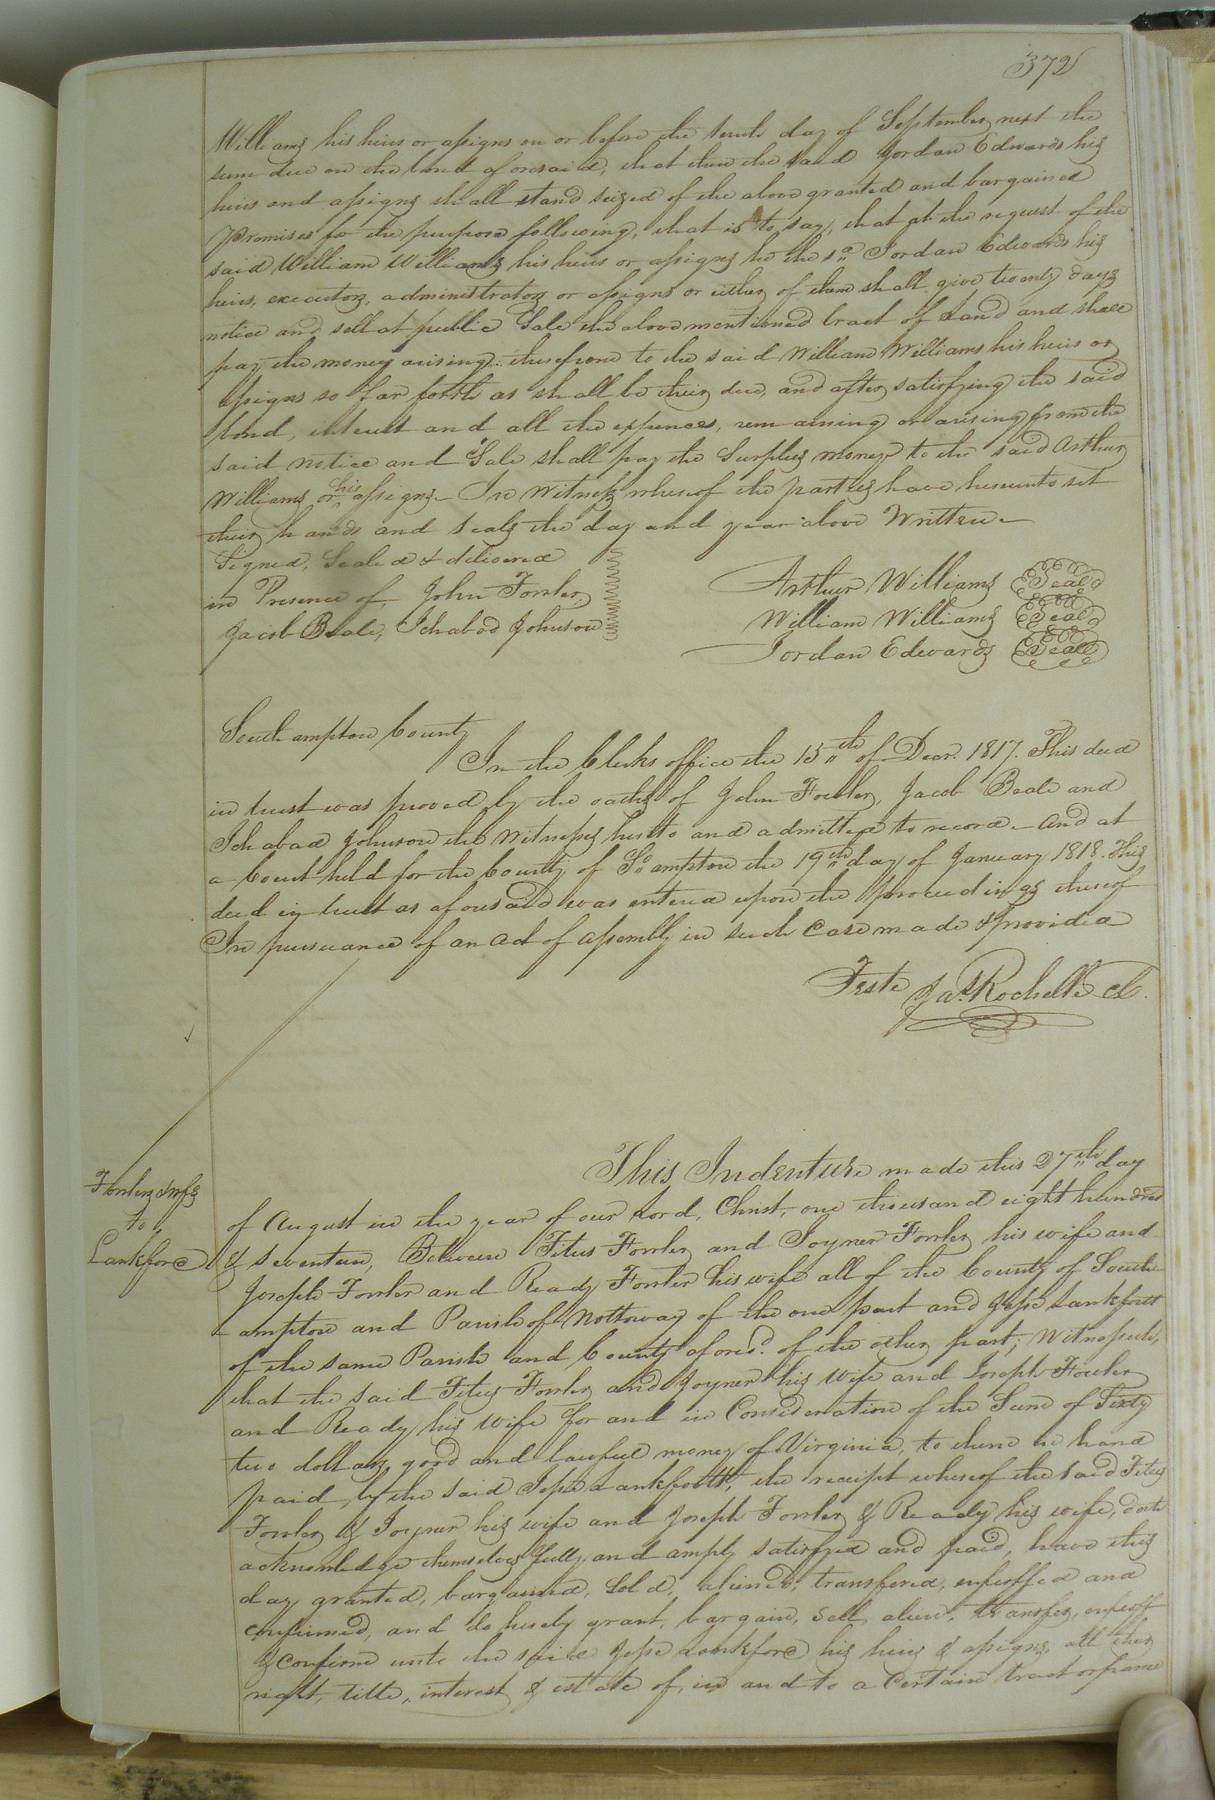 372
Williams his heirs or assigns on or before the tenth day of September next the
sum due on the bond aforesaid, that then the said Jordan Edwards his
heirs and assigns shall stand seized of the above granted and bargained
Premises for the purpose following, that is to say, that at the request of the
said William Williams his heirs or assigns he the sd Jordan Edwards his
heirs, executors, administrators or assigns or either of them shall give twenty days
notice and sell at public Sale the above mentioned tract of Land and shall
pay the money arising therefrom to the said William Williams his heirs or
assigns so far forth as shall be their due, and after satisfying the said
bond, interest and all the expences, remaining or arising from the
said notice and Sale shall pay the Surplus money to the said Arthur
Williams or his assigns - In Witness whereof the parties have hereunto set
their hands and seals the day and year above Written -
Signed, Sealed & delivered
in Presence of John Fowler,
Jacob Beale, Ichabod Johnson
Arthur Williams Seal
William Williams Seal
Jordan Edwards Seal
Southampton County
In the Clerks office the 15th of Decr. 1817. This deed
in trust was proved by the oaths of John Fowler, Jacob Beale and
Ichabod Johnson the Witnesses hereto and admitted to record - And at
a Court held for the County of So ampton the 19th day of January 1818. This
deed in trust as aforesaid was entered upon the proceedings thereof
In pursuance of an act of assembly in such case made & provided
Teste Jas. Rochelle Cl.
Fowlers & wifes
to
Lankford
This Indenture made this 27th day
of August in the year of our Lord, Christ, one thousand eight hundred
& seventeen, Between Titus Fowler and Joyner Fowler his wife and
Joseph Fowler and Ready Fowler his wife all of the County of South-
ampton and Parish of Nottoway of the one part and Jesse Lankfortt
of the same Parish and County aforesd. of the other part, Witnesseth,
that the said Titus Fowler and Joyner his wife and Joseph Fowler
and Ready his wife for and in Consideration of the Sum of Sixty
two dollars good and lawfull money of Virginia, to them in hand
paid by the said Jesse Lankfortt, the receipt whereof the said Titus
Fowler & Joyner his wife and Joseph Fowler & Ready his wife, doth
acknowledge themselves fully and amply satisfyed and paid, have this
day granted, bargained, Sold, aliened, transfered, enfeoffed and
confirmed, and do hereby grant, bargain, Sell, alien, transfer, enfeoff
& Confirm unto the said Jesse Lankford his heirs & assigns, all their
right, title, interest & estate of, in and to a Certain tract or